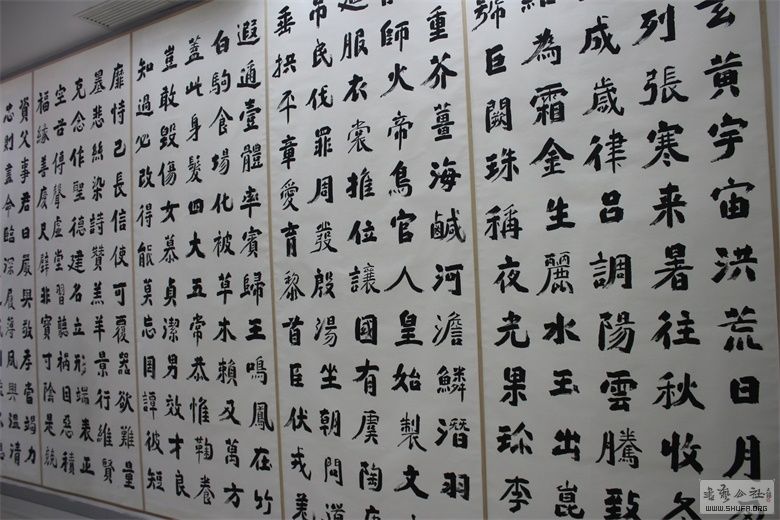 玄黃宇宙洪荒日月
列張寒来暑往秋收冬
成歲律吕調陽雲騰致
結為霜金生麗水玉出崑
號巨闕珠稱夜光果珎李
重芥薑海鹹河澹鱗潛羽
師火帝鳥官人皇始製文
服衣裳推位讓國有虞陶
吊民伐罪周發殷湯坐朝問道
垂拱平章愛育黎首臣伏戎羌
遐邇壹體率賓歸王鳴鳳在竹
白駒食場化被草木賴及萬方
蓋此身髮四大五常恭惟鞠養
豈敢毀傷女慕貞潔男效才良
知過必改得能莫忘罔譚彼短
靡恃己長信使可覆器欲難量
墨悲絲染詩贊羔羊景行維賢
克念作聖德建名立形端表正
空谷傳聲虛堂習聽禍因惡積
福緣善慶尺璧非寶寸陰是競
資父事君曰嚴與敬孝當竭力
忠則盡命臨深履薄夙興溫清
書藝公社
WWW.SHUFA.ORG